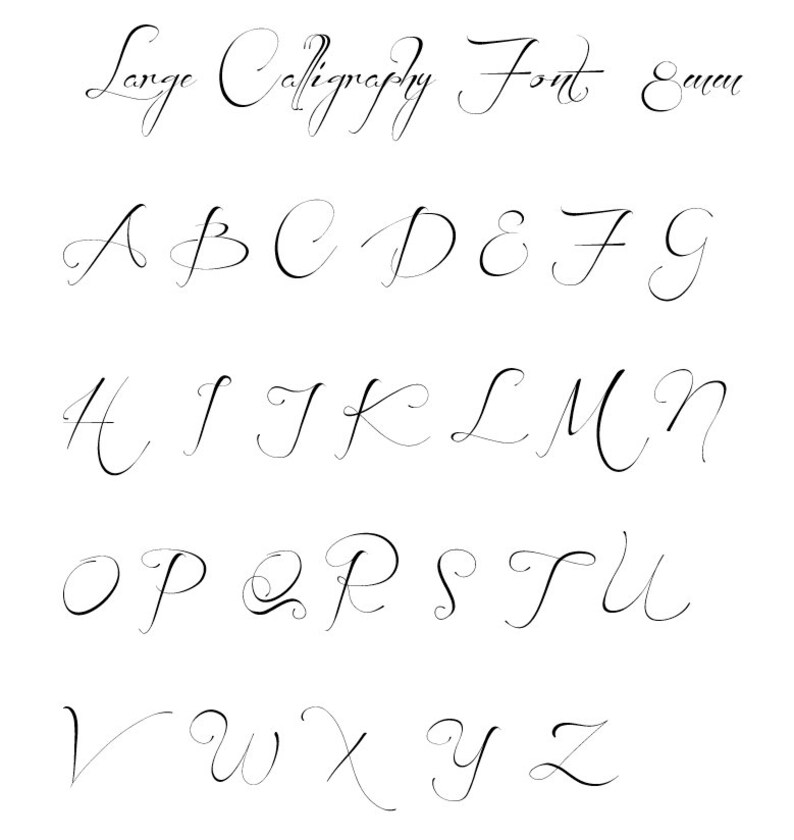 Large Calligraphy Font 8mm
A B C D E F G
H I J K L M N
O P Q R S T U
V W X Y Z